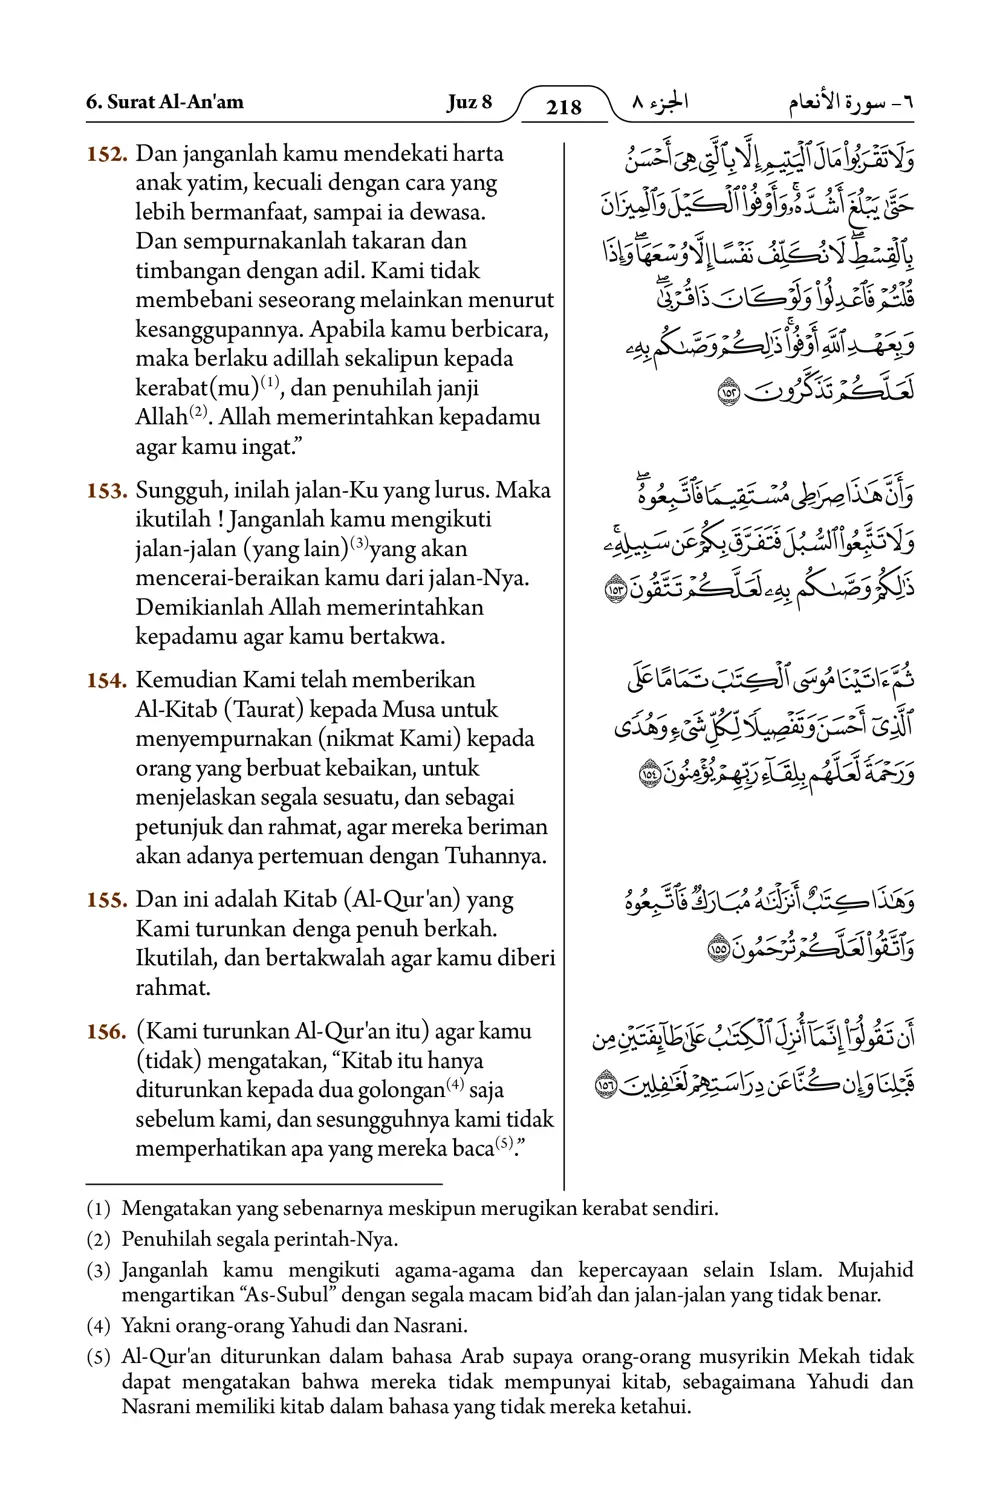 6. Surat Al-An'am Juz 8 218 الجزء ٨ ٦- سورة الأنعام
152. Dan janganlah kamu mendekati harta
anak yatim, kecuali dengan cara yang
lebih bermanfaat, sampai ia dewasa.
Dan sempurnakanlah takaran dan
timbangan dengan adil. Kami tidak
membebani seseorang melainkan menurut
kesanggupannya. Apabila kamu berbicara,
maka berlaku adillah sekalipun kepada
kerabat(mu)(1), dan penuhilah janji
Allah(2). Allah memerintahkan kepadamu
agar kamu ingat.”
وَلَا تَقْرَبُوا۟ مَالَ ٱلْيَتِيمِ إِلَّا بِٱلَّتِى هِىَ أَحْسَنُ
حَتَّىٰ يَبْلُغَ أَشُدَّهُۥ ۚ وَأَوْفُوا۟ ٱلْكَيْلَ وَٱلْمِيزَانَ
بِٱلْقِسْطِ ۖ لَا نُكَلِّفُ نَفْسًا إِلَّا وُسْعَهَا ۖ وَإِذَا
قُلْتُمْ فَٱعْدِلُوا۟ وَلَوْ كَانَ ذَا قُرْبَىٰ ۖ
وَبِعَهْدِ ٱللَّهِ أَوْفُوا۟ ۚ ذَٰلِكُمْ وَصَّىٰكُم بِهِۦ
لَعَلَّكُمْ تَذَكَّرُونَ ١٥٢
153. Sungguh, inilah jalan-Ku yang lurus. Maka
ikutilah ! Janganlah kamu mengikuti
jalan-jalan (yang lain)(3)yang akan
mencerai-beraikan kamu dari jalan-Nya.
Demikianlah Allah memerintahkan
kepadamu agar kamu bertakwa.
وَأَنَّ هَٰذَا صِرَٰطِى مُسْتَقِيمًا فَٱتَّبِعُوهُ ۖ
وَلَا تَتَّبِعُوا۟ ٱلسُّبُلَ فَتَفَرَّقَ بِكُمْ عَن سَبِيلِهِۦ ۚ
ذَٰلِكُمْ وَصَّىٰكُم بِهِۦ لَعَلَّكُمْ تَتَّقُونَ ١٥٣
154. Kemudian Kami telah memberikan
Al-Kitab (Taurat) kepada Musa untuk
menyempurnakan (nikmat Kami) kepada
orang yang berbuat kebaikan, untuk
menjelaskan segala sesuatu, dan sebagai
petunjuk dan rahmat, agar mereka beriman
akan adanya pertemuan dengan Tuhannya.
ثُمَّ ءَاتَيْنَا مُوسَى ٱلْكِتَٰبَ تَمَامًا عَلَى
ٱلَّذِىٓ أَحْسَنَ وَتَفْصِيلًا لِّكُلِّ شَىْءٍ وَهُدًى
وَرَحْمَةً لَّعَلَّهُم بِلِقَآءِ رَبِّهِمْ يُؤْمِنُونَ ١٥٤
155. Dan ini adalah Kitab (Al-Qur'an) yang
Kami turunkan denga penuh berkah.
Ikutilah, dan bertakwalah agar kamu diberi
rahmat.
وَهَٰذَا كِتَٰبٌ أَنزَلْنَٰهُ مُبَارَكٌ فَٱتَّبِعُوهُ
وَٱتَّقُوا۟ لَعَلَّكُمْ تُرْحَمُونَ ١٥٥
156. (Kami turunkan Al-Qur'an itu) agar kamu
(tidak) mengatakan, “Kitab itu hanya
diturunkan kepada dua golongan(4) saja
sebelum kami, dan sesungguhnya kami tidak
memperhatikan apa yang mereka baca(5).”
أَن تَقُولُوٓا۟ إِنَّمَآ أُنزِلَ ٱلْكِتَٰبُ عَلَىٰ طَآئِفَتَيْنِ مِن
قَبْلِنَا وَإِن كُنَّا عَن دِرَاسَتِهِمْ لَغَٰفِلِينَ ١٥٦
(1) Mengatakan yang sebenarnya meskipun merugikan kerabat sendiri.
(2) Penuhilah segala perintah-Nya.
(3) Janganlah kamu mengikuti agama-agama dan kepercayaan selain Islam. Mujahid
mengartikan “As-Subul” dengan segala macam bid’ah dan jalan-jalan yang tidak benar.
(4) Yakni orang-orang Yahudi dan Nasrani.
(5) Al-Qur'an diturunkan dalam bahasa Arab supaya orang-orang musyrikin Mekah tidak
dapat mengatakan bahwa mereka tidak mempunyai kitab, sebagaimana Yahudi dan
Nasrani memiliki kitab dalam bahasa yang tidak mereka ketahui.